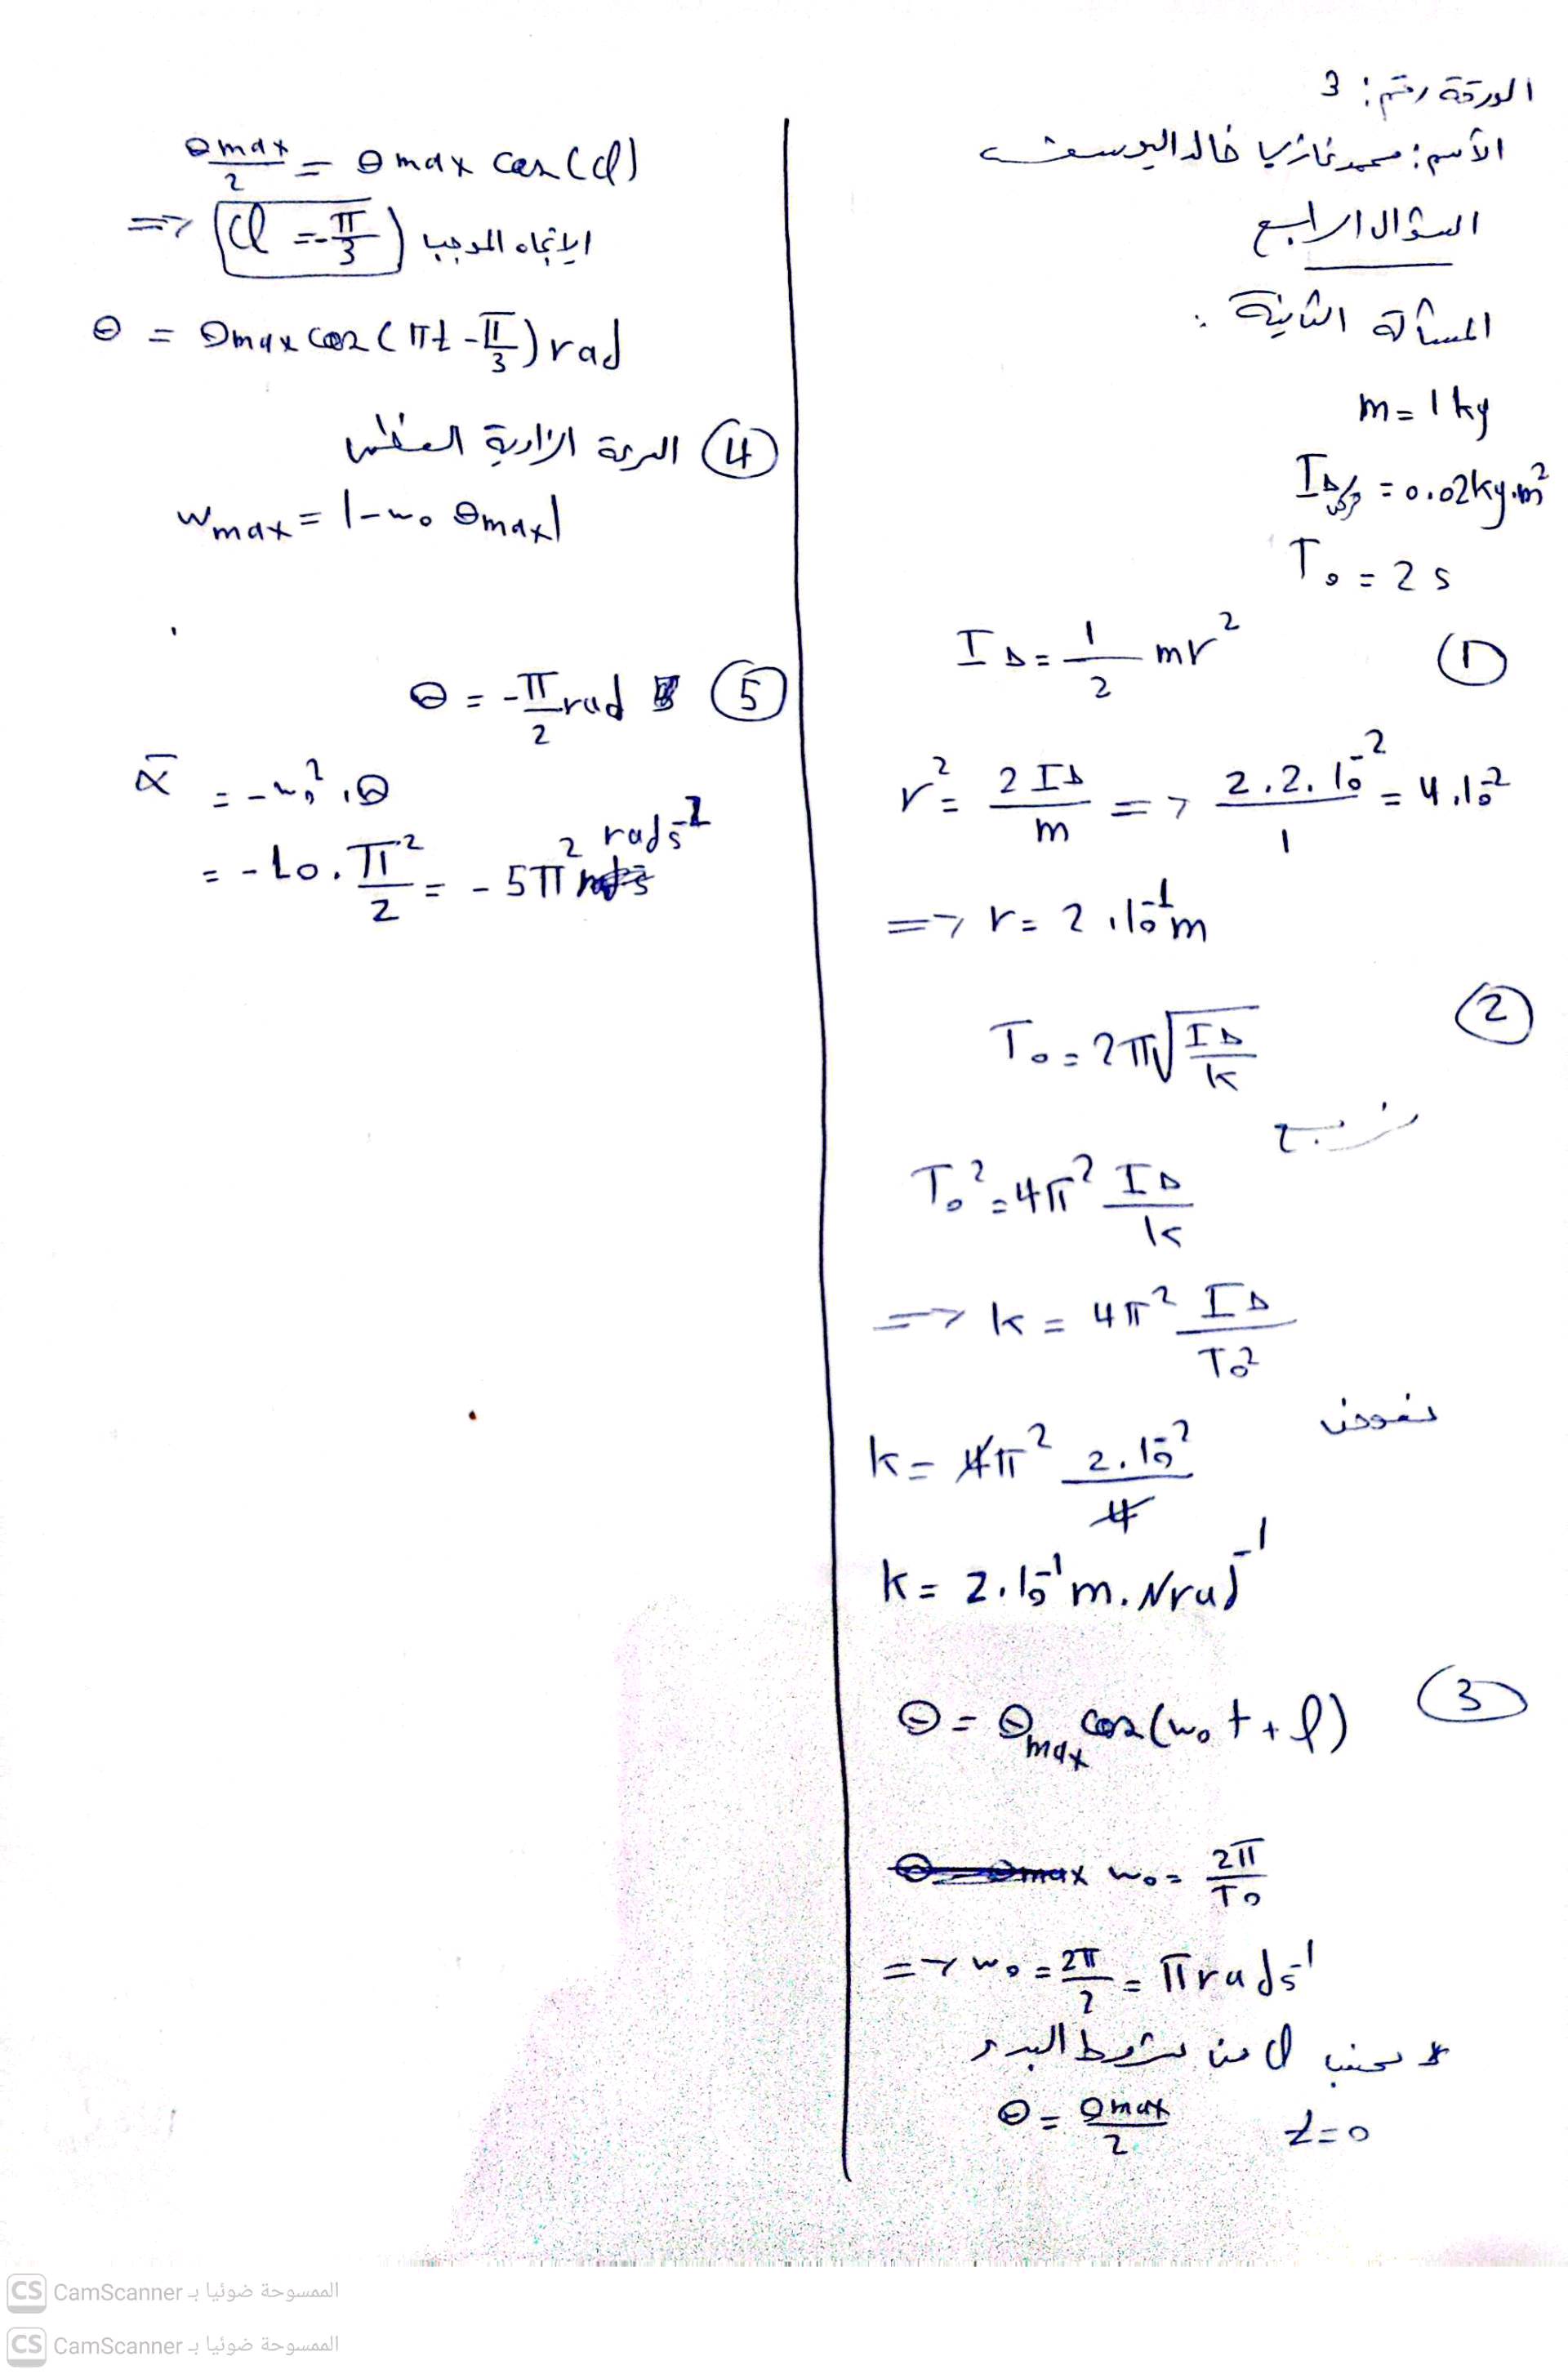 الورقة رقم: 3
الأسم: محمد غازيا خالد اليوسف
السؤال الرابع
المسألة الثانية:
m = 1 kg
I∆/قرص = 0.02 kg.m²
T₀ = 2 s
① I∆ = 1/2 mr²
r² = 2 I∆/m => 2.2.10⁻²/1 = 4.10⁻²
=> r = 2.10⁻¹ m
② T₀ = 2π√(I∆/k)
نربع
T₀² = 4π² I∆/k
=> k = 4π² I∆/T₀²
نعوض
k = 4π² 2.10⁻²/4
k = 2.10⁻¹ m.N rad⁻¹
③ θ = θmax cos(ω₀t + φ)
ω₀ = 2π/T₀
=> ω₀ = 2π/2 = π rad s⁻¹
* نحسب φ من شروط البدء
t = 0 θ = θmax/2
θmax/2 = θmax cos(φ)
=> φ = -π/3 الاتجاه الموجب
θ = θmax cos(πt - π/3) rad
④ السرعة الزاوية العظمى
ωmax = |-ω₀ θmax|
⑤ θ = -π/2 rad
α = -ω₀².θ
= -10.π²/2 = -5π² rad s⁻²
الممسوحة ضوئيا بـ CamScanner
الممسوحة ضوئيا بـ CamScanner